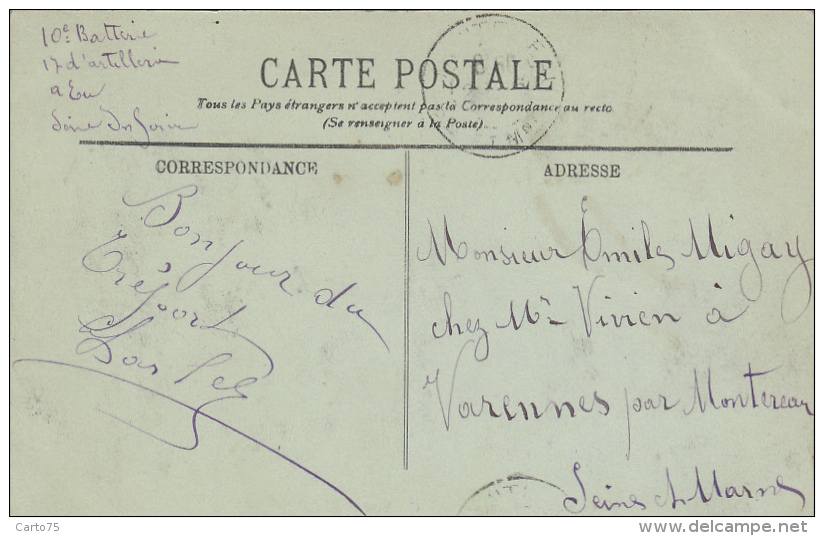 10e Batterie
17 d'artillerie
a Eu
Seine Inferieure
CARTE POSTALE
Tous les Pays étrangers n'acceptent pas la Correspondance au recto
(Se renseigner à la Poste)
CORRESPONDANCE
Bonjour du
Tréport
ADRESSE
Monsieur Emile Migay
chez Mr Vivien à
Varennes par Montereau
Seine et Marne
Carto75
www.delcampe.net